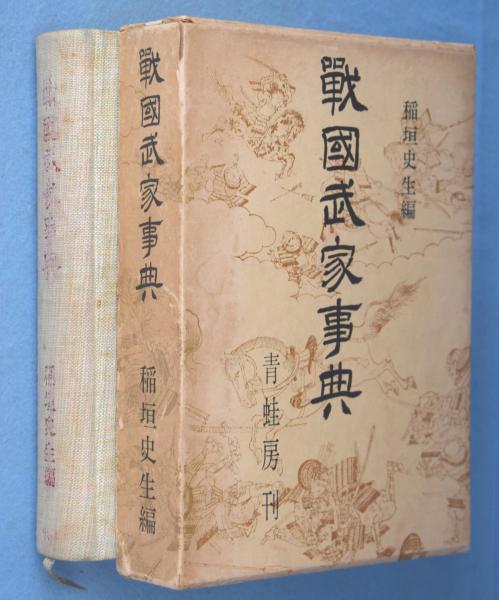 戰國武家事典
稲垣史生編
青蛙房刊
戰國武家事典
稲垣史生編
戰國武家事典
稲垣史生編